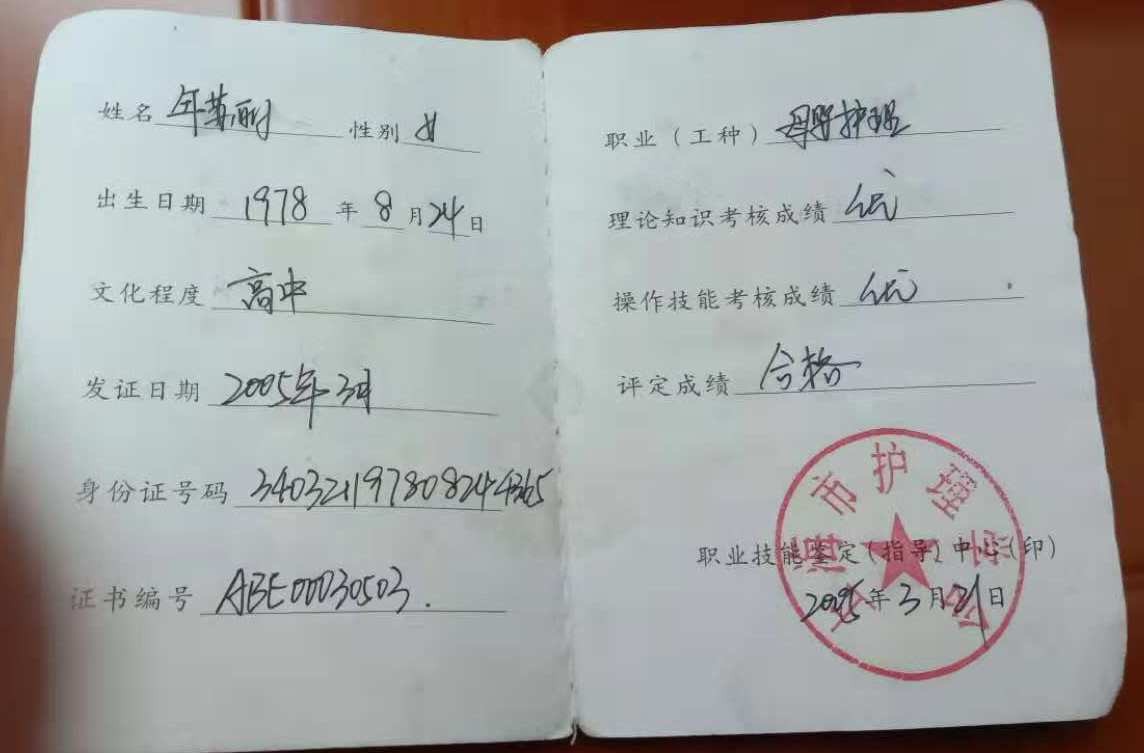 姓名 年苏丽 性别 女
出生日期 1978 年 8 月 24 日
文化程度 高中
发证日期 2005年3月
身份证号码 340321197808244365
证书编号 ABE00030503.
职业（工种） 母婴护理
理论知识考核成绩 优
操作技能考核成绩 优
评定成绩 合格
市护理学会
职业技能鉴定(指导)中心(印)
2005年3月21日